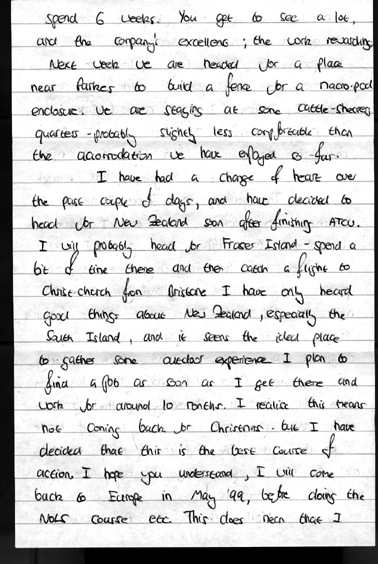 spend 6 weeks. You get to see a lot,
and the company's excellent; the work rewarding
Next week we are headed for a place
near Parkes to build a fence for a macropod
enclosure. We are staying at some cattle-shearers
quarters - probably slightly less comfortable than
the accomodation we have enjoyed so far.
I have had a change of heart over
the past couple of days, and have decided to
head for New Zealand soon after finishing ATCV.
I will probably head for Fraser Island - spend a
bit of time there and then catch a flight to
Christ-church from Brisbane I have only heard
good things about New Zealand, especially the
South Island, and it seems the ideal place
to gather some outdoor experience I plan to
find a job as soon as I get there and
work for around 10 months. I realize this means
not coming back for Christmas - but I have
decided that this is the best course of
action, I hope you understand, I will come
back to Europe in May '99, before doing the
NOLS course etc. This does mean that I